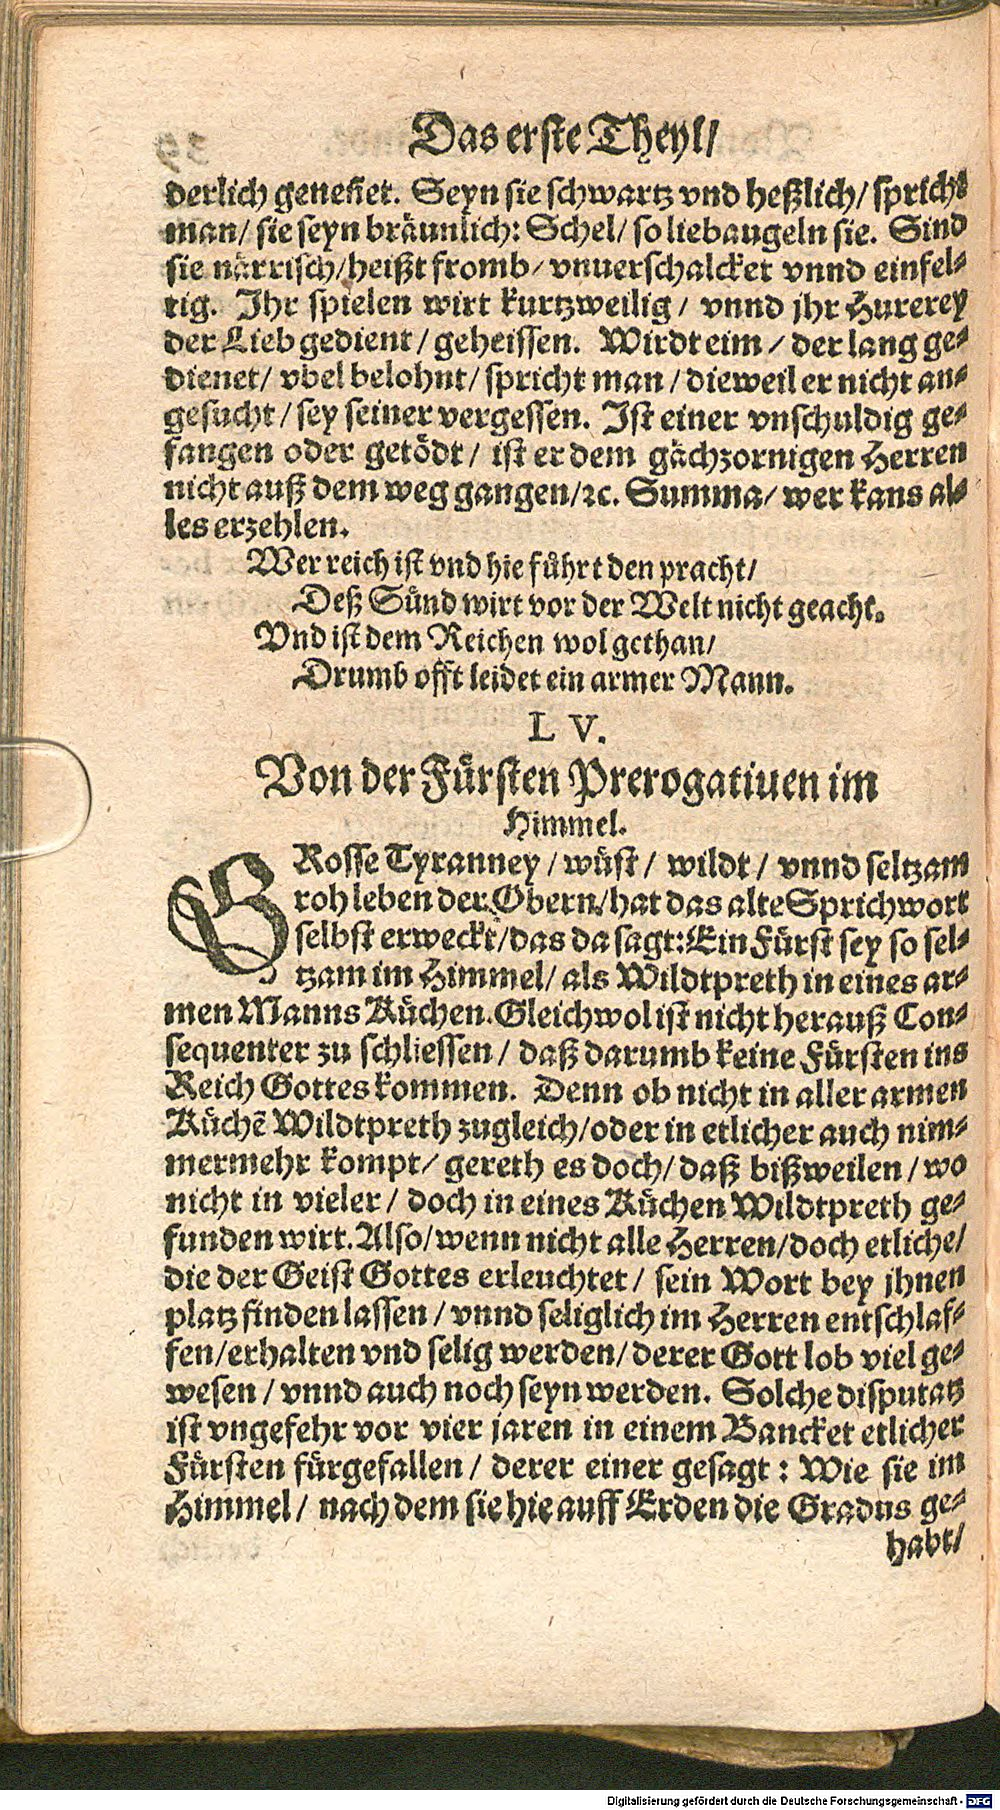 Das erste Theyl/
derlich genehet. Seyn sie schwartz vnd heßlich/ spricht
man/ sie seyn bräunlich: Schel/ so liebaugeln sie. Sind
sie närrisch/ heißt fromb/ vnuerschalcket vnnd einfel-
tig. Ihr spielen wirt kurtzweilig/ vnnd jhr Hurerey
der Lieb gedient/ geheissen. Wirdt eim/ der lang ge-
dienet/ vbel belohnt/ spricht man/ dieweil er nicht an-
gesucht/ sey seiner vergessen. Ist einer vnschuldig ge-
fangen oder getödt/ ist er dem gächzornigen Herren
nicht auß dem weg gangen/ꝛc. Summa/ wer kans al-
les erzehlen.
Wer reich ist vnd hie führt den pracht/
Deß Sünd wirt vor der Welt nicht geacht.
Vnd ist dem Reichen wol gethan/
Drumb offt leidet ein armer Mann.
LV.
Von der Fürsten Prerogatiuen im
Himmel.
GRosse Tyranney/ wüst/ wildt/ vnnd seltzam
roh leben der Obern/ hat das alte Sprichwort
selbst erweckt/ das da sagt: Ein Fürst sey so sel-
tzam im Himmel/ als Wildtpreth in eines ar-
men Manns Küchen. Gleichwol ist nicht herauß Con-
sequenter zu schliessen/ daß darumb keine Fürsten ins
Reich Gottes kommen. Denn ob nicht in aller armen
Küchē Wildtpreth zugleich/ oder in etlicher auch nim-
mermehr kompt/ gereth es doch/ daß bißweilen/ wo
nicht in vieler/ doch in eines Küchen Wildtpreth ge-
funden wirt. Also/ wenn nicht alle Herren/ doch etliche/
die der Geist Gottes erleuchtet/ sein Wort bey jhnen
platz finden lassen/ vnnd seliglich im Herren entschlaf-
fen/ erhalten vnd selig werden/ derer Gott lob viel ge-
wesen/ vnnd auch noch seyn werden. Solche disputatz
ist vngefehr vor vier jaren in einem Bancket etlicher
Fürsten fürgefallen/ derer einer gesagt: Wie sie im
Himmel/ nach dem sie hie auff Erden die Gradus ge-
habt/
Digitalisierung gefördert durch die Deutsche Forschungsgemeinschaft - DFG